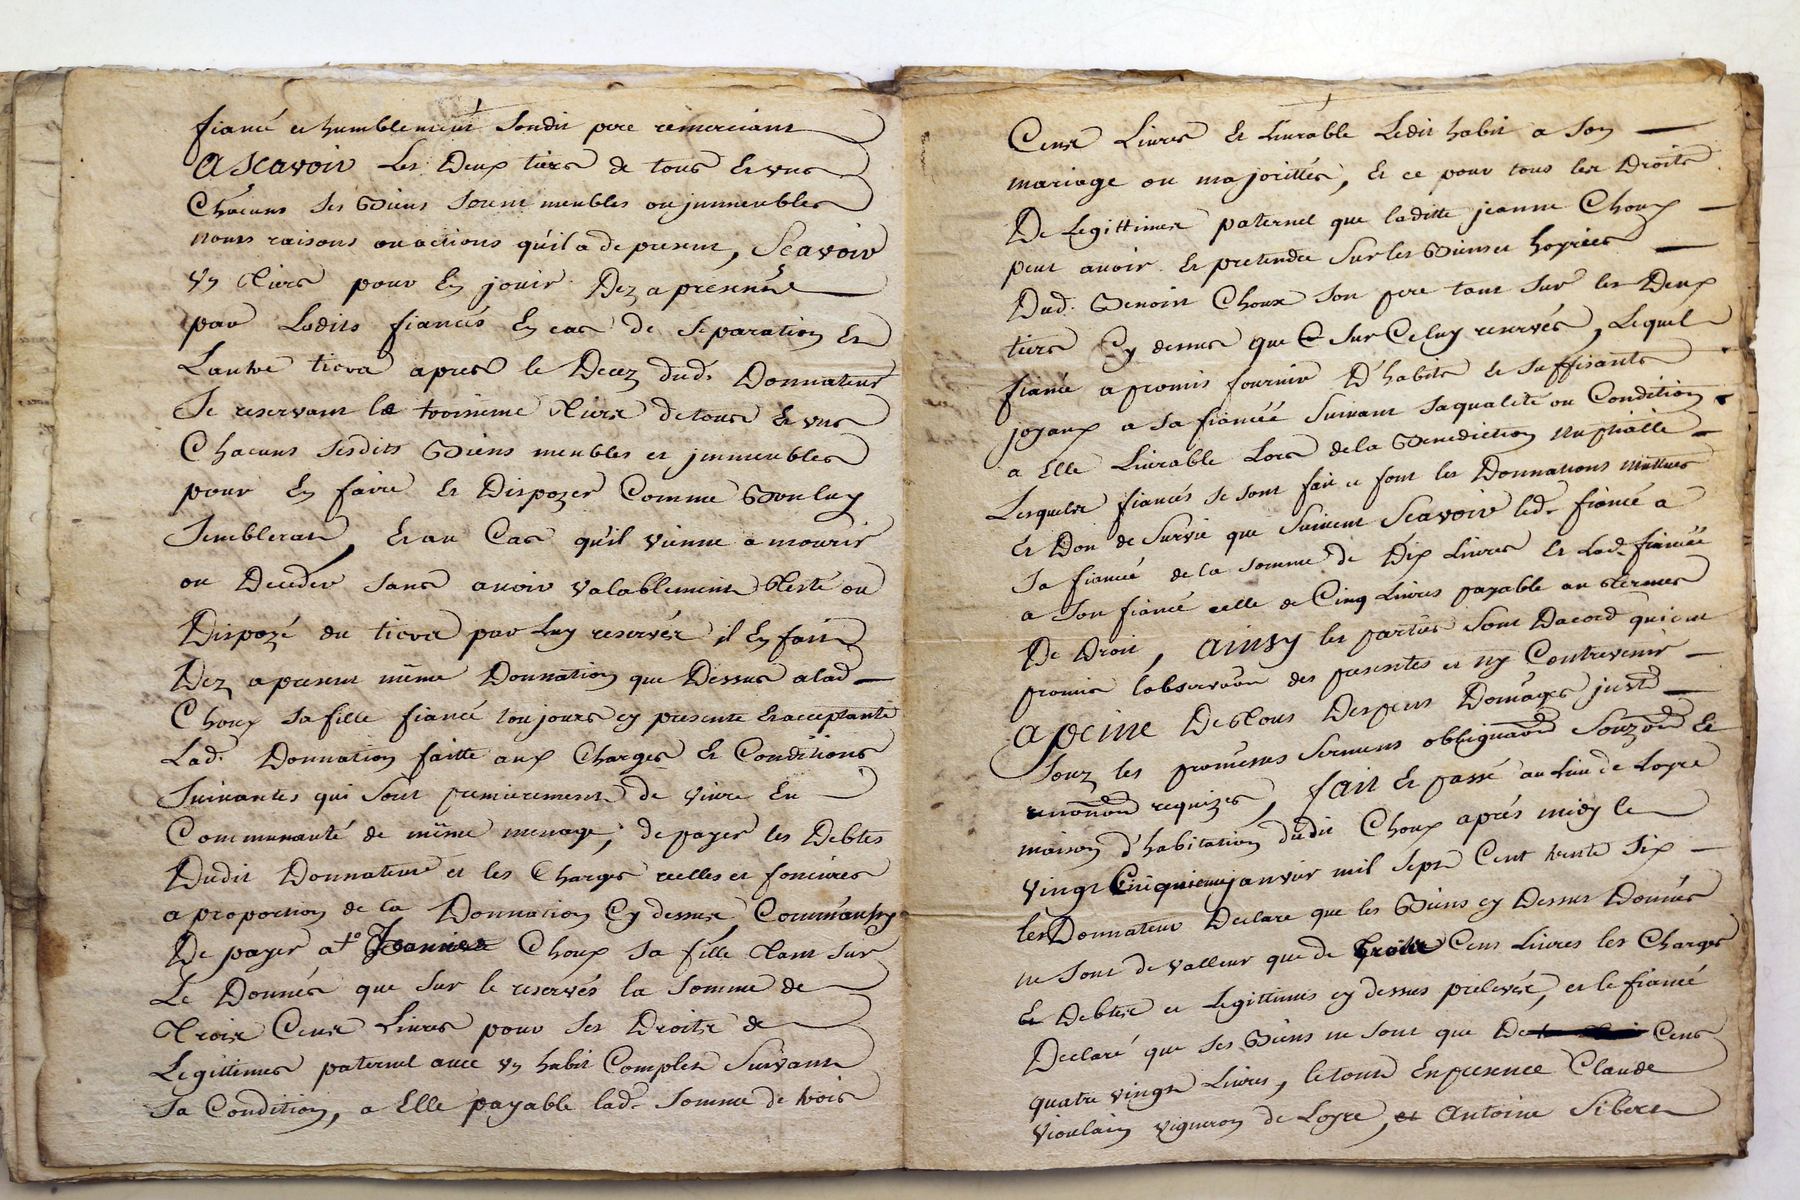 fiancé et humblement sondit pere remerciant
Ascavoir Les Deux tiers de tous et uns
Chácuns ses Biens soient meubles ou jmmeubles
noms raisons ou actions qu'il a de present, Scavoir
vn Tiers pour En jouir Dez apresent
par Lesdits fiancés En cas de Separation Et
Lautre tiers apres le Decez dud. Donnateur
Se reservant le troisieme Tiers de tous Et vns
Chacuns sesdits Biens meubles et jmmeubles
pour En faire Et Dispozer Comme Bon luy
Semblerat, Et au Cas qu'il vienne a mourir
ou Deceder sans avoir valablement Testé ou
Dispozé du tiers par Luy reservés il En fait
Dez apresent même Donnation que Dessus a lad.
Choux sa fille fiancé toujours cy presente Et acceptante
Lad. Donnation faitte aux Charges Et Conditions
Suivantes qui sont premierement de vivre En
Communauté de même menage, de payer les Debtes
Dudit Donnateur et les Charges reelles et foncieres
a proportion de la Donnation Cy dessus
De payer a Jeanne Choux sa fille Tant sur
Le Donnés que sur le reservés la Somme de
Trois Cens Livres pour ses Droits de
Legittimes paternel avec vn habit Complet Suivant
sa Condition, a Elle payable lad. Somme de trois
Cens Livres Et Livrable Ledit habit a son
mariage ou majorittés, Et ce pour tous les Droits
De Legittimes paternel que laditte jeanne Choux
peut avoir Et pretendre sur les Biens et hoyries
Dud. Benoist Choux son pere tant sur les Deux
tiers Cy dessus que sur Celuy reservés, Lequel
fiancé a promis fournir D'habits Et suffisants
joyaux a sa fiancéé suivant sa qualité ou Condition
a Elle Livrable Lors de la Benediction nuptialle
Lesquels fiancés se sont fait et font les Donnations mutues
Et Don de survie que suivent Scavoir led. fiancé a
sa fiancéé de la somme de Dix Livres Et Lad. fiancéé
a son fiancé celle de Cinq Livres payable au termes
De Droit, Ainsy les parties sont Dacord qui ont
promis lobservaon des presentes et ny Contrevenir
Apeine De Tous Despens Domages
souz les promesses sermens
requizes, fait Et passé au Lieu de Loyre
maison d'habitation dudit Choux aprés midy le
vingt Cinquieme janvier mil sept Cent trente six
les Donnateur Declare que les Biens cy Dessus Donnés
ne sont de valleur que de trois Cens Livres les Charges
Et Debtes et Legittimes cy dessus prelevés, et le fiancé
Declaré que ses Biens ne sont que De Cens
quatre vingt Livres, le tout En presence Claude
vigneron de Loyre, et Antoine Sibert